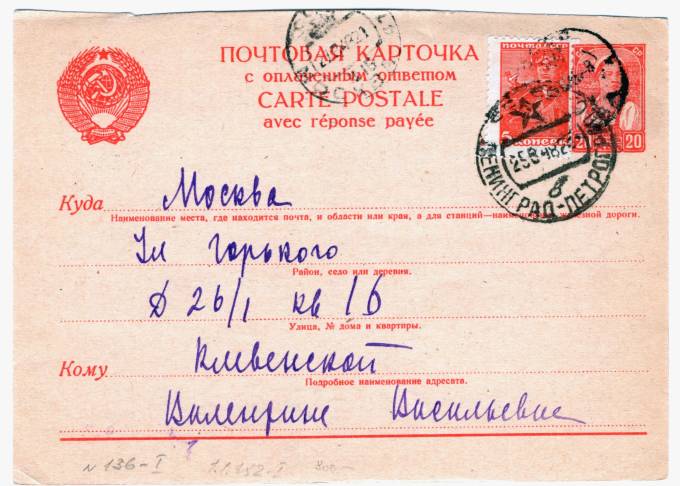 ПОЧТОВАЯ КАРТОЧКА
с оплаченным ответом
CARTE POSTALE
avec réponse payée
ПОЧТА СССР
5 КОПЕЕК
20
20
ЛЕНИНГРАД-ПЕТРОГР
Куда Москва
Наименование места, где находится почта, и области или края, а для станций—наименование железной дороги.
Ул Горького
Район, село или деревня.
Д 26/1 кв 16
Улица, № дома и квартиры.
Кому Клевенской
Подробное наименование адресата.
Валентине Васильевне
N 136-I
800-